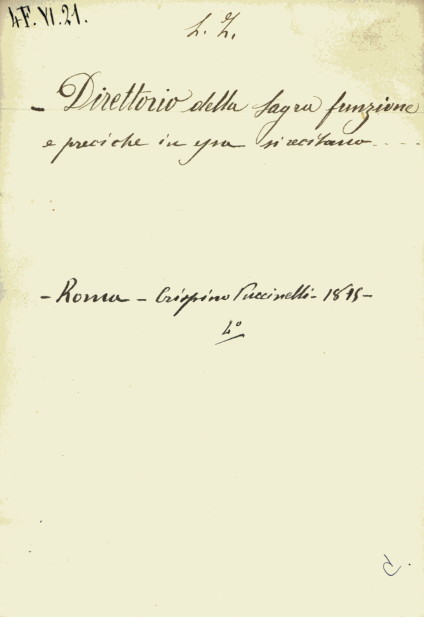 4F.VI.21.
L. Z.
- Direttorio della sagra funzione
e preci che in essa si recitano ....
- Roma - Crispino Puccinelli - 1815 -
4º